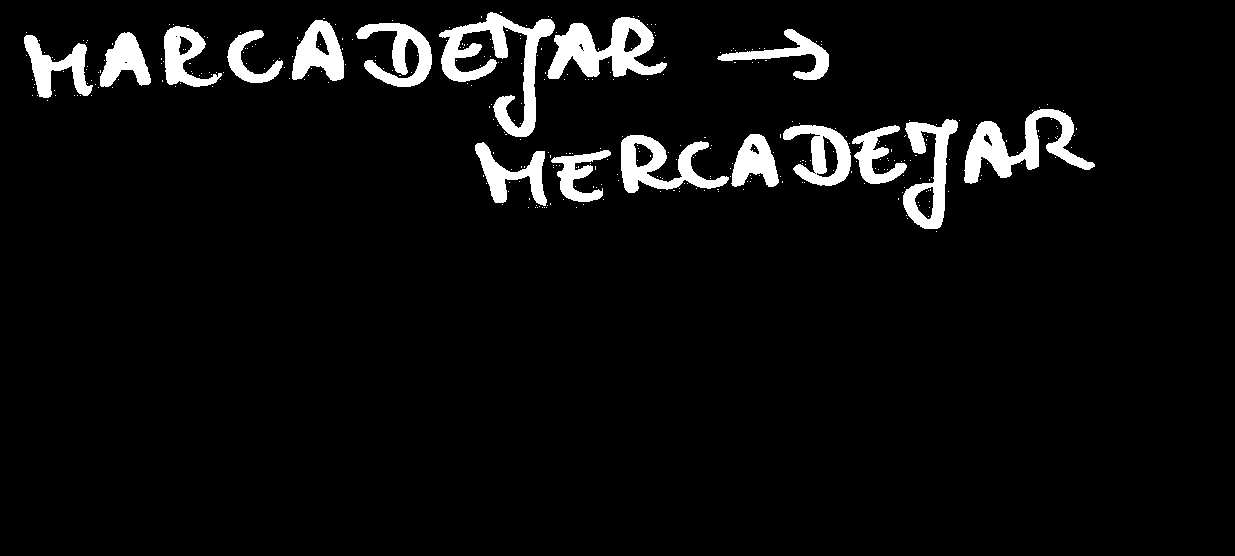 MARCADEJAR →
MERCADEJAR